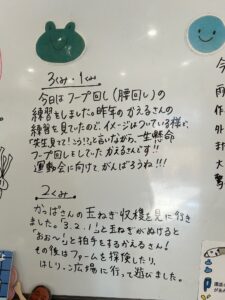 3くみ・1くみ
今日はフープ回し(腰回し)の
練習をしました。昨年のかえるさんの
練習を見ていたので、イメージはついている様で、
"先生見て!こう!?"と言いながら、一生懸命
フープ回しをしていたかえるさんです!!
運動会に向けてがんばろうね!!!
2くみ
かっぱさんの玉ねぎ収穫を見に行き
ました。「3.2.1!」と玉ねぎがぬけると
「おぉ〜!」と拍手をするかえるさん!
その後はファームを探険したり、
はしりっこ広場に行って遊びました。
今
雨
作
外